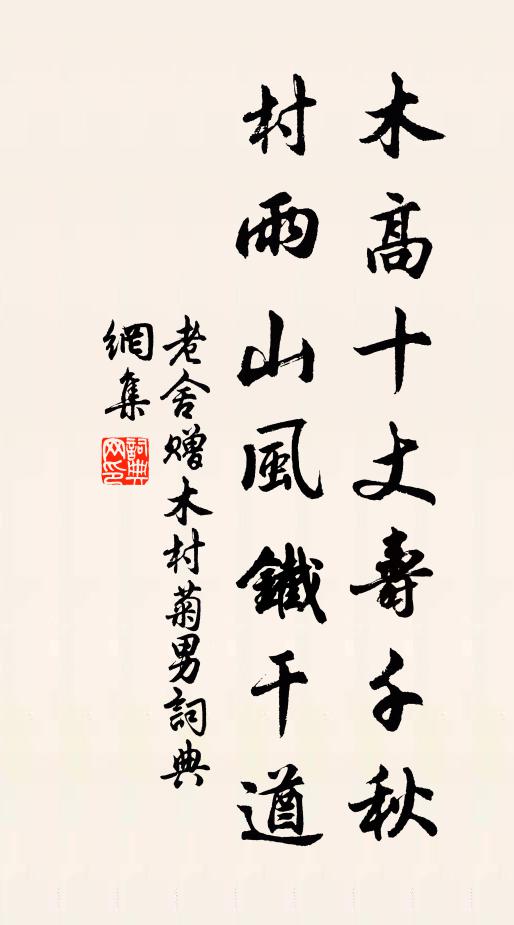 木高十丈壽千秋
村雨山風鐵干遒
老舍贈木村菊男詞典
網集
詞典
网印